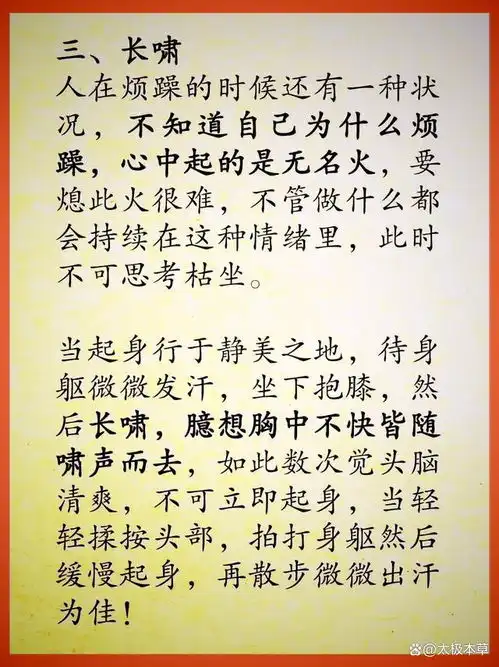 三、长啸
人在烦躁的时候还有一种状
况，不知道自己为什么烦
躁，心中起的是无名火，要
熄此火很难，不管做什么都
会持续在这种情绪里，此时
不可思考枯坐。
当起身行于静美之地，待身
躯微微发汗，坐下抱膝，然
后长啸，臆想胸中不快皆随
啸声而去，如此数次觉头脑
清爽，不可立即起身，当轻
轻揉按头部，拍打身躯然后
缓慢起身，再散步微微出汗
为佳！
@太极本草